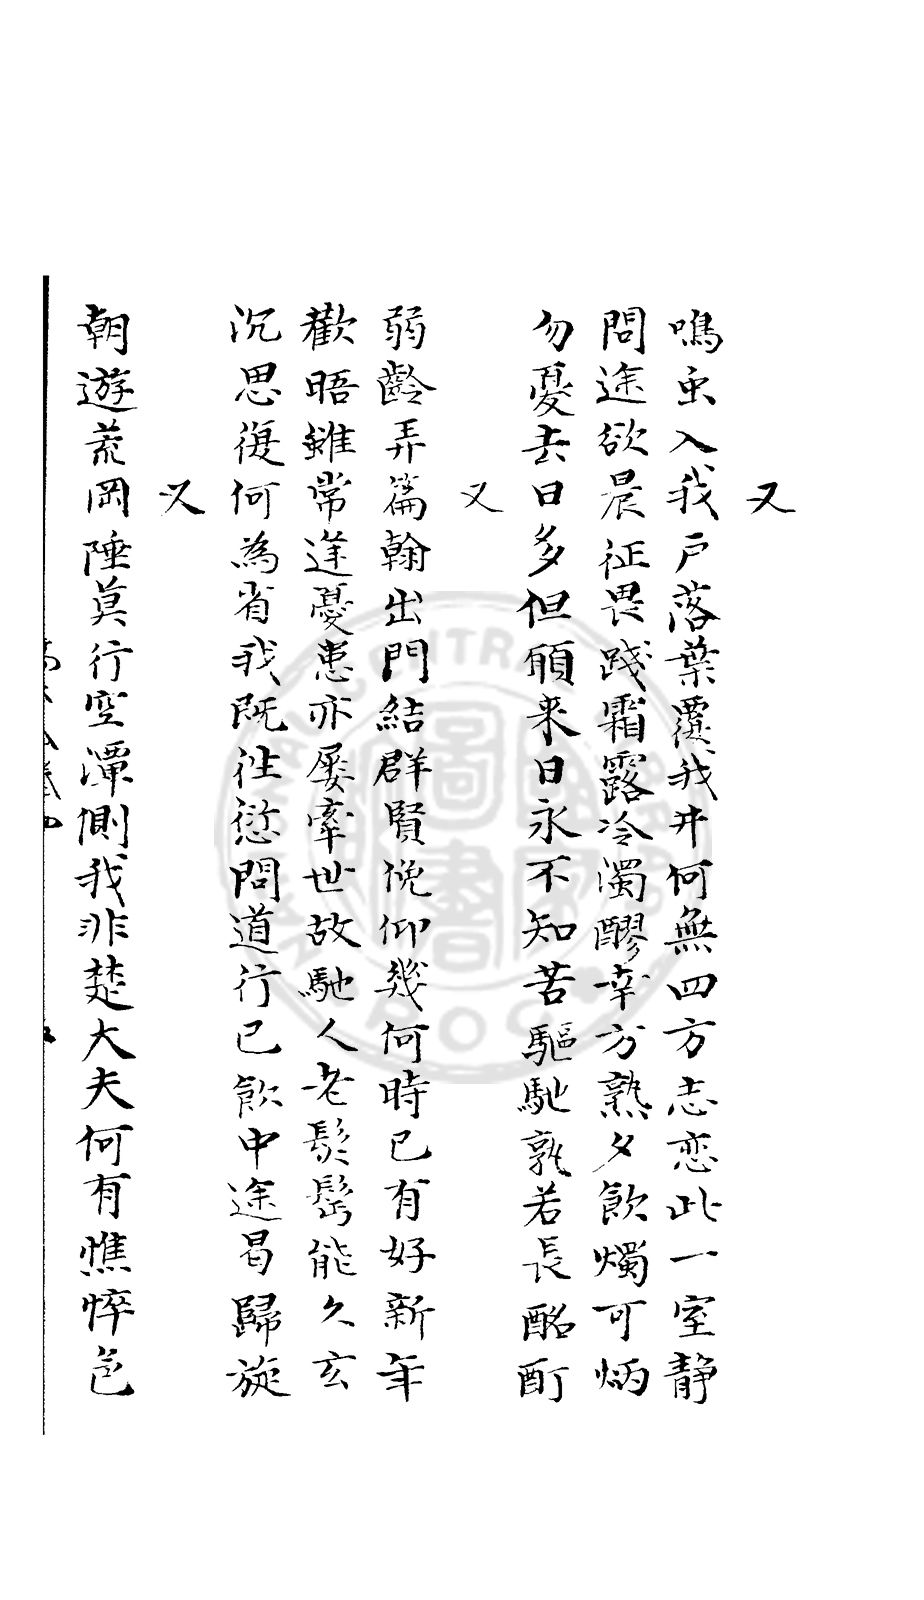 又
鳴虫入我戶落葉覆我井何無四方志恋此一室静
問途欲晨征畏踐霜露冷濁醪幸方熟夕飲燭可炳
勿憂去日多但願来日永不知苦驅馳孰若長酩酊
又
弱齡弄篇翰出門結群賢俛仰幾何時已有好新年
歡晤雖常逢憂患亦屡牽世故馳人老鬓髩能久玄
沉思復何為省我既徃愆問道行已飲中途曷歸旋
又
朝遊荒岡陲莫行空潭側我非楚大夫何有憔悴色